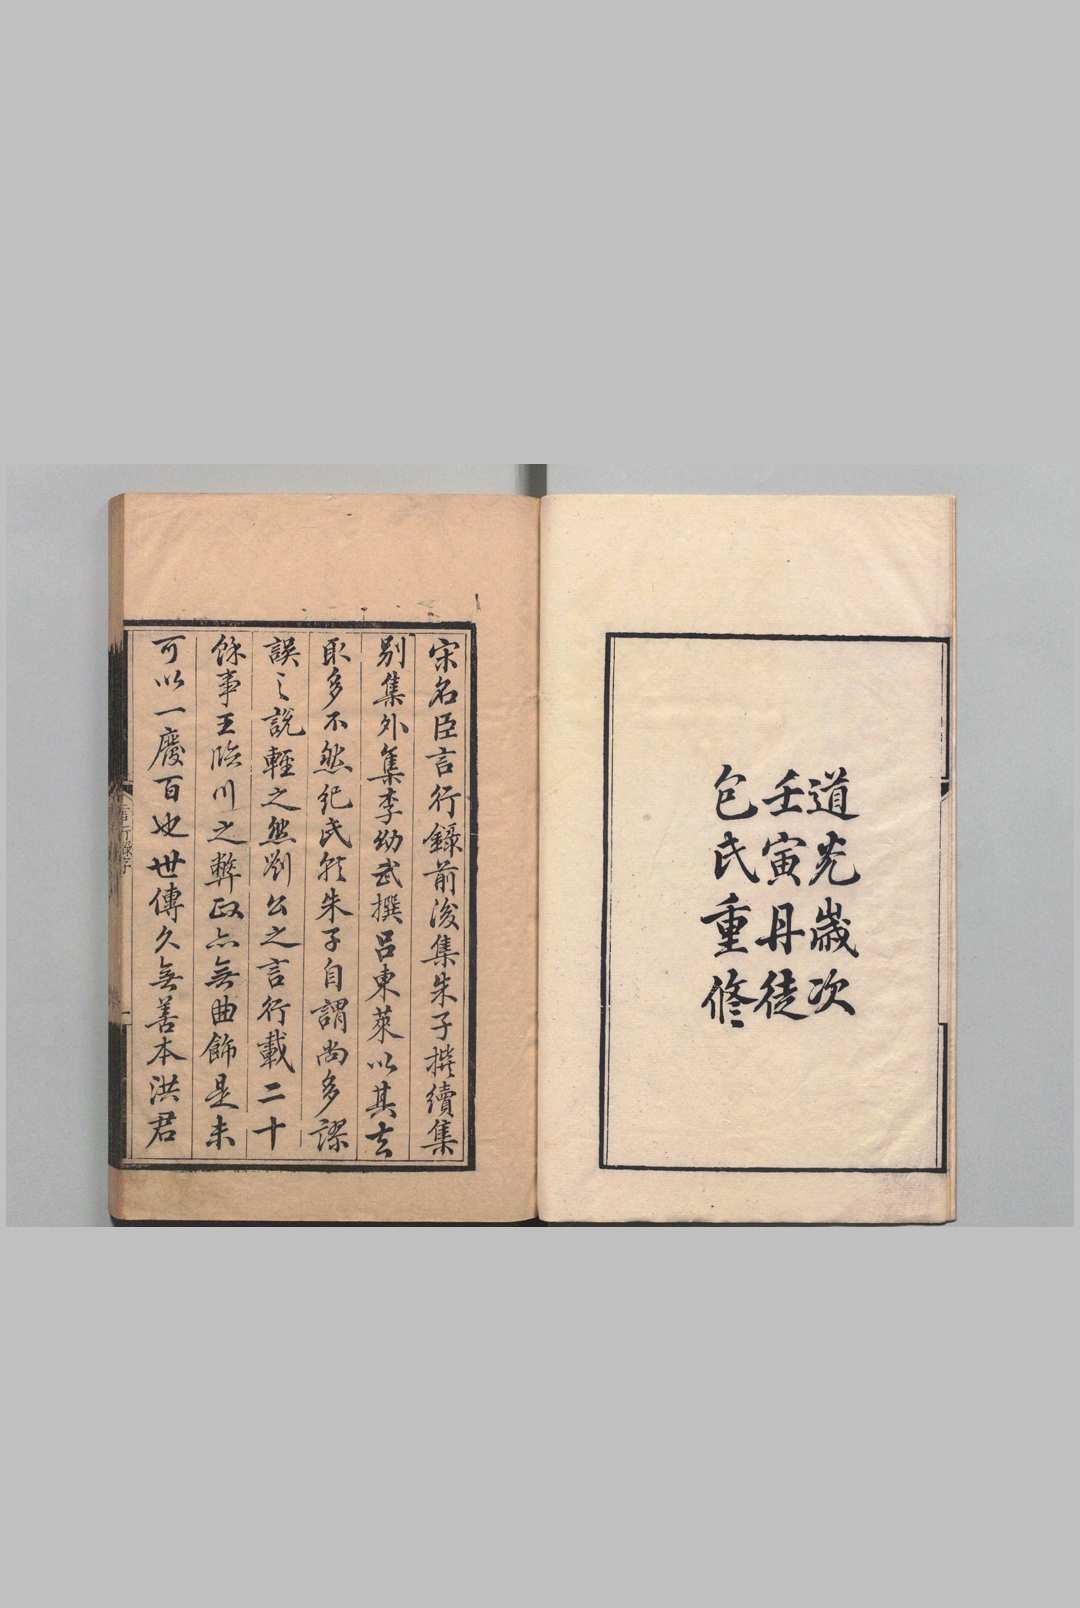 道光歲次
壬寅丹徒
包氏重修
宋名臣言行錄前後集朱子撰續集
別集外集李幼武撰呂東萊以其去
取多不然紀氏於朱子自謂尚多謬
誤之說輕之然劉公之言行載二十
餘事王臨川之弊政亦無曲飾是未
可以一廢百也世傳久無善本洪君
言行錄序
一